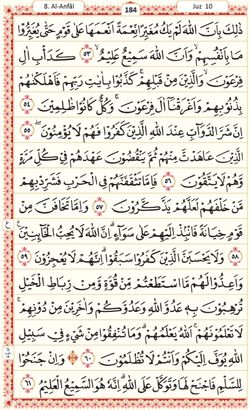 8. Al-Anfâl
184
Juz 10
ذٰلِكَ بِاَنَّ اللّٰهَ لَمْ يَكُ مُغَيِّرًا نِّعْمَةً اَنْعَمَهَا عَلٰى قَوْمٍ حَتّٰى يُغَيِّرُوْا
مَا بِاَنْفُسِهِمْۙ وَاَنَّ اللّٰهَ سَمِيْعٌ عَلِيْمٌۙ ﴿٥٣﴾ كَدَاْبِ اٰلِ
فِرْعَوْنَۙ وَالَّذِيْنَ مِنْ قَبْلِهِمْۗ كَذَّبُوْا بِاٰيٰتِ رَبِّهِمْ فَاَهْلَكْنٰهُمْ
بِذُنُوْبِهِمْ وَاَغْرَقْنَآ اٰلَ فِرْعَوْنَۚ وَكُلٌّ كَانُوْا ظٰلِمِيْنَ ﴿٥٤﴾
اِنَّ شَرَّ الدَّوَاۤبِّ عِنْدَ اللّٰهِ الَّذِيْنَ كَفَرُوْا فَهُمْ لَا يُؤْمِنُوْنَۖ ﴿٥٥﴾
الَّذِيْنَ عَاهَدْتَّ مِنْهُمْ ثُمَّ يَنْقُضُوْنَ عَهْدَهُمْ فِيْ كُلِّ مَرَّةٍ
وَّهُمْ لَا يَتَّقُوْنَ ﴿٥٦﴾ فَاِمَّا تَثْقَفَنَّهُمْ فِى الْحَرْبِ فَشَرِّدْ بِهِمْ
مَّنْ خَلْفَهُمْ لَعَلَّهُمْ يَذَّكَّرُوْنَ ﴿٥٧﴾ وَاِمَّا تَخَافَنَّ مِنْ
قَوْمٍ خِيَانَةً فَانْۢبِذْ اِلَيْهِمْ عَلٰى سَوَاۤءٍۗ اِنَّ اللّٰهَ لَا يُحِبُّ الْخَاۤىِٕنِيْنَ
﴿٥٨﴾ وَلَا يَحْسَبَنَّ الَّذِيْنَ كَفَرُوْا سَبَقُوْاۗ اِنَّهُمْ لَا يُعْجِزُوْنَ ﴿٥٩﴾
وَاَعِدُّوْا لَهُمْ مَّا اسْتَطَعْتُمْ مِّنْ قُوَّةٍ وَّمِنْ رِّبَاطِ الْخَيْلِ
تُرْهِبُوْنَ بِهٖ عَدُوَّ اللّٰهِ وَعَدُوَّكُمْ وَاٰخَرِيْنَ مِنْ دُوْنِهِمْۚ
لَا تَعْلَمُوْنَهُمْۚ اَللّٰهُ يَعْلَمُهُمْۗ وَمَا تُنْفِقُوْا مِنْ شَيْءٍ فِيْ سَبِيْلِ
اللّٰهِ يُوَفَّ اِلَيْكُمْ وَاَنْتُمْ لَا تُظْلَمُوْنَ ﴿٦٠﴾ وَاِنْ جَنَحُوْا
لِلسَّلْمِ فَاجْنَحْ لَهَا وَتَوَكَّلْ عَلَى اللّٰهِۗ اِنَّهٗ هُوَ السَّمِيْعُ الْعَلِيْمُ ﴿٦١﴾